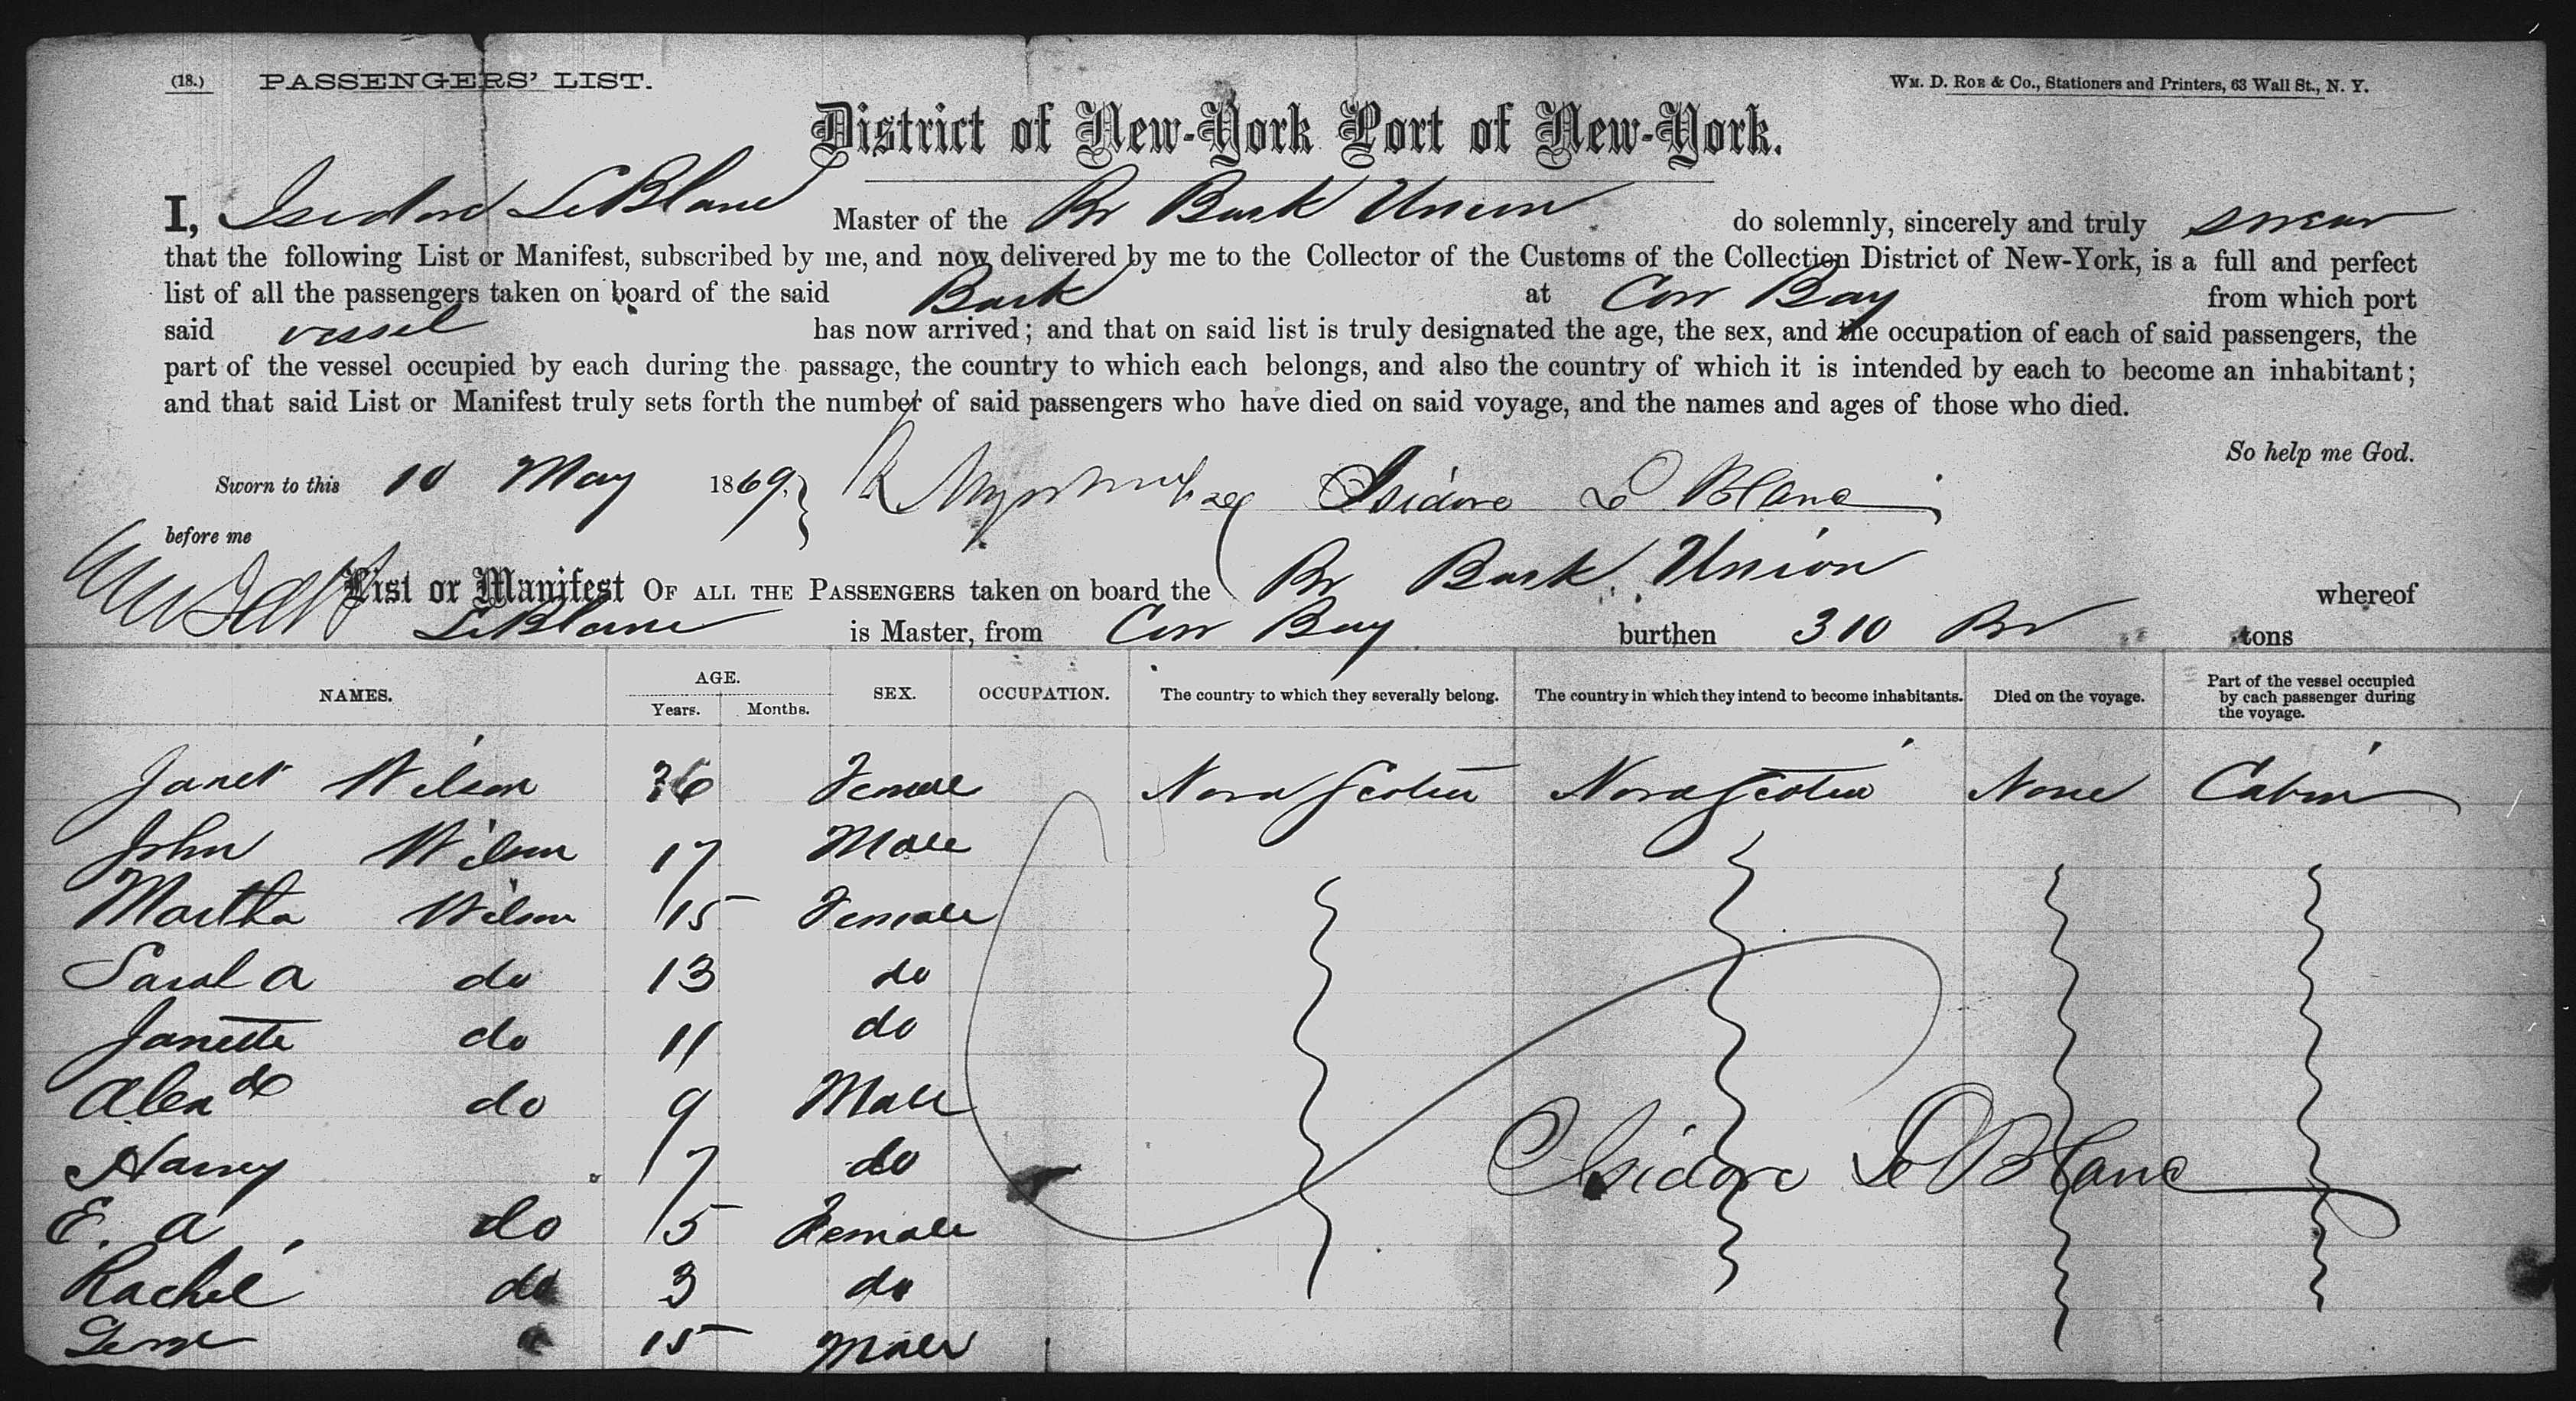 (18.) PASSENGERS' LIST. Wm. D. Roe & Co., Stationers and Printers, 63 Wall St., N. Y.
District of New-York Port of New-York.
I, Isidore LeBlanc Master of the Br Bark Union do solemnly, sincerely and truly swear
that the following List or Manifest, subscribed by me, and now delivered by me to the Collector of the Customs of the Collection District of New-York, is a full and perfect
list of all the passengers taken on board of the said Bark at Cow Bay from which port
said vessel has now arrived; and that on said list is truly designated the age, the sex, and the occupation of each of said passengers, the
part of the vessel occupied by each during the passage, the country to which each belongs, and also the country of which it is intended by each to become an inhabitant;
and that said List or Manifest truly sets forth the number of said passengers who have died on said voyage, and the names and ages of those who died.
So help me God.
Sworn to this 10 May 1869. Isidore Le Blanc
before me
List or Manifest OF ALL THE PASSENGERS taken on board the Br Bark Union whereof
LeBlanc is Master, from Cow Bay burthen 310 Br tons
NAMES. AGE. Years. Months. SEX. OCCUPATION. The country to which they severally belong. The country in which they intend to become inhabitants. Died on the voyage. Part of the vessel occupied by each passenger during the voyage.
Janet Wilson 36 Female Nova Scotia Nova Scotia None Cabin
John Wilson 17 Male
Martha Wilson 15 Female
Sarah A do 13 do
Janette do 11 do
Alex do 9 Male
Harvey 7 do
E. A. do 5 Female
Isidore Le Blanc
Rachel do 3 do
George 15 Male